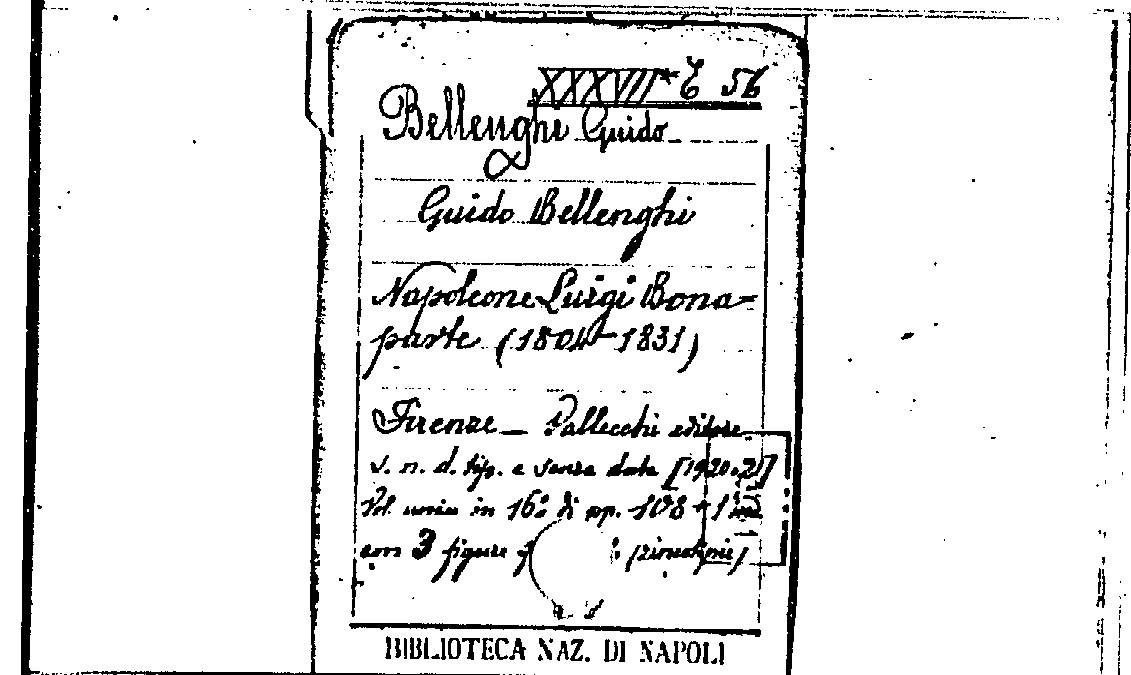 XXXVII* E 56
Bellenghi Guido
Guido Bellenghi
Napoleone Luigi Bona=
parte (1804-1831)
Firenze — Vallecchi editore
s. n. d. tip. e senza data [1920.21]
Vol. unico in 16° di pp. 108 + 1
con 3 figure (zincotipie)
BIBLIOTECA NAZ. DI NAPOLI